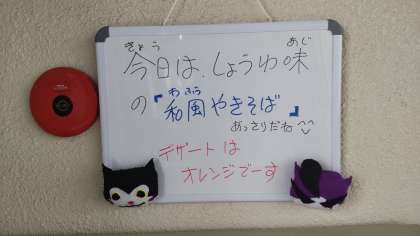 きょう あじ
今日は、しょうゆ味
わふう
の『和風やきそば』
あっさりだね^^
デザートは
オレンジでーす